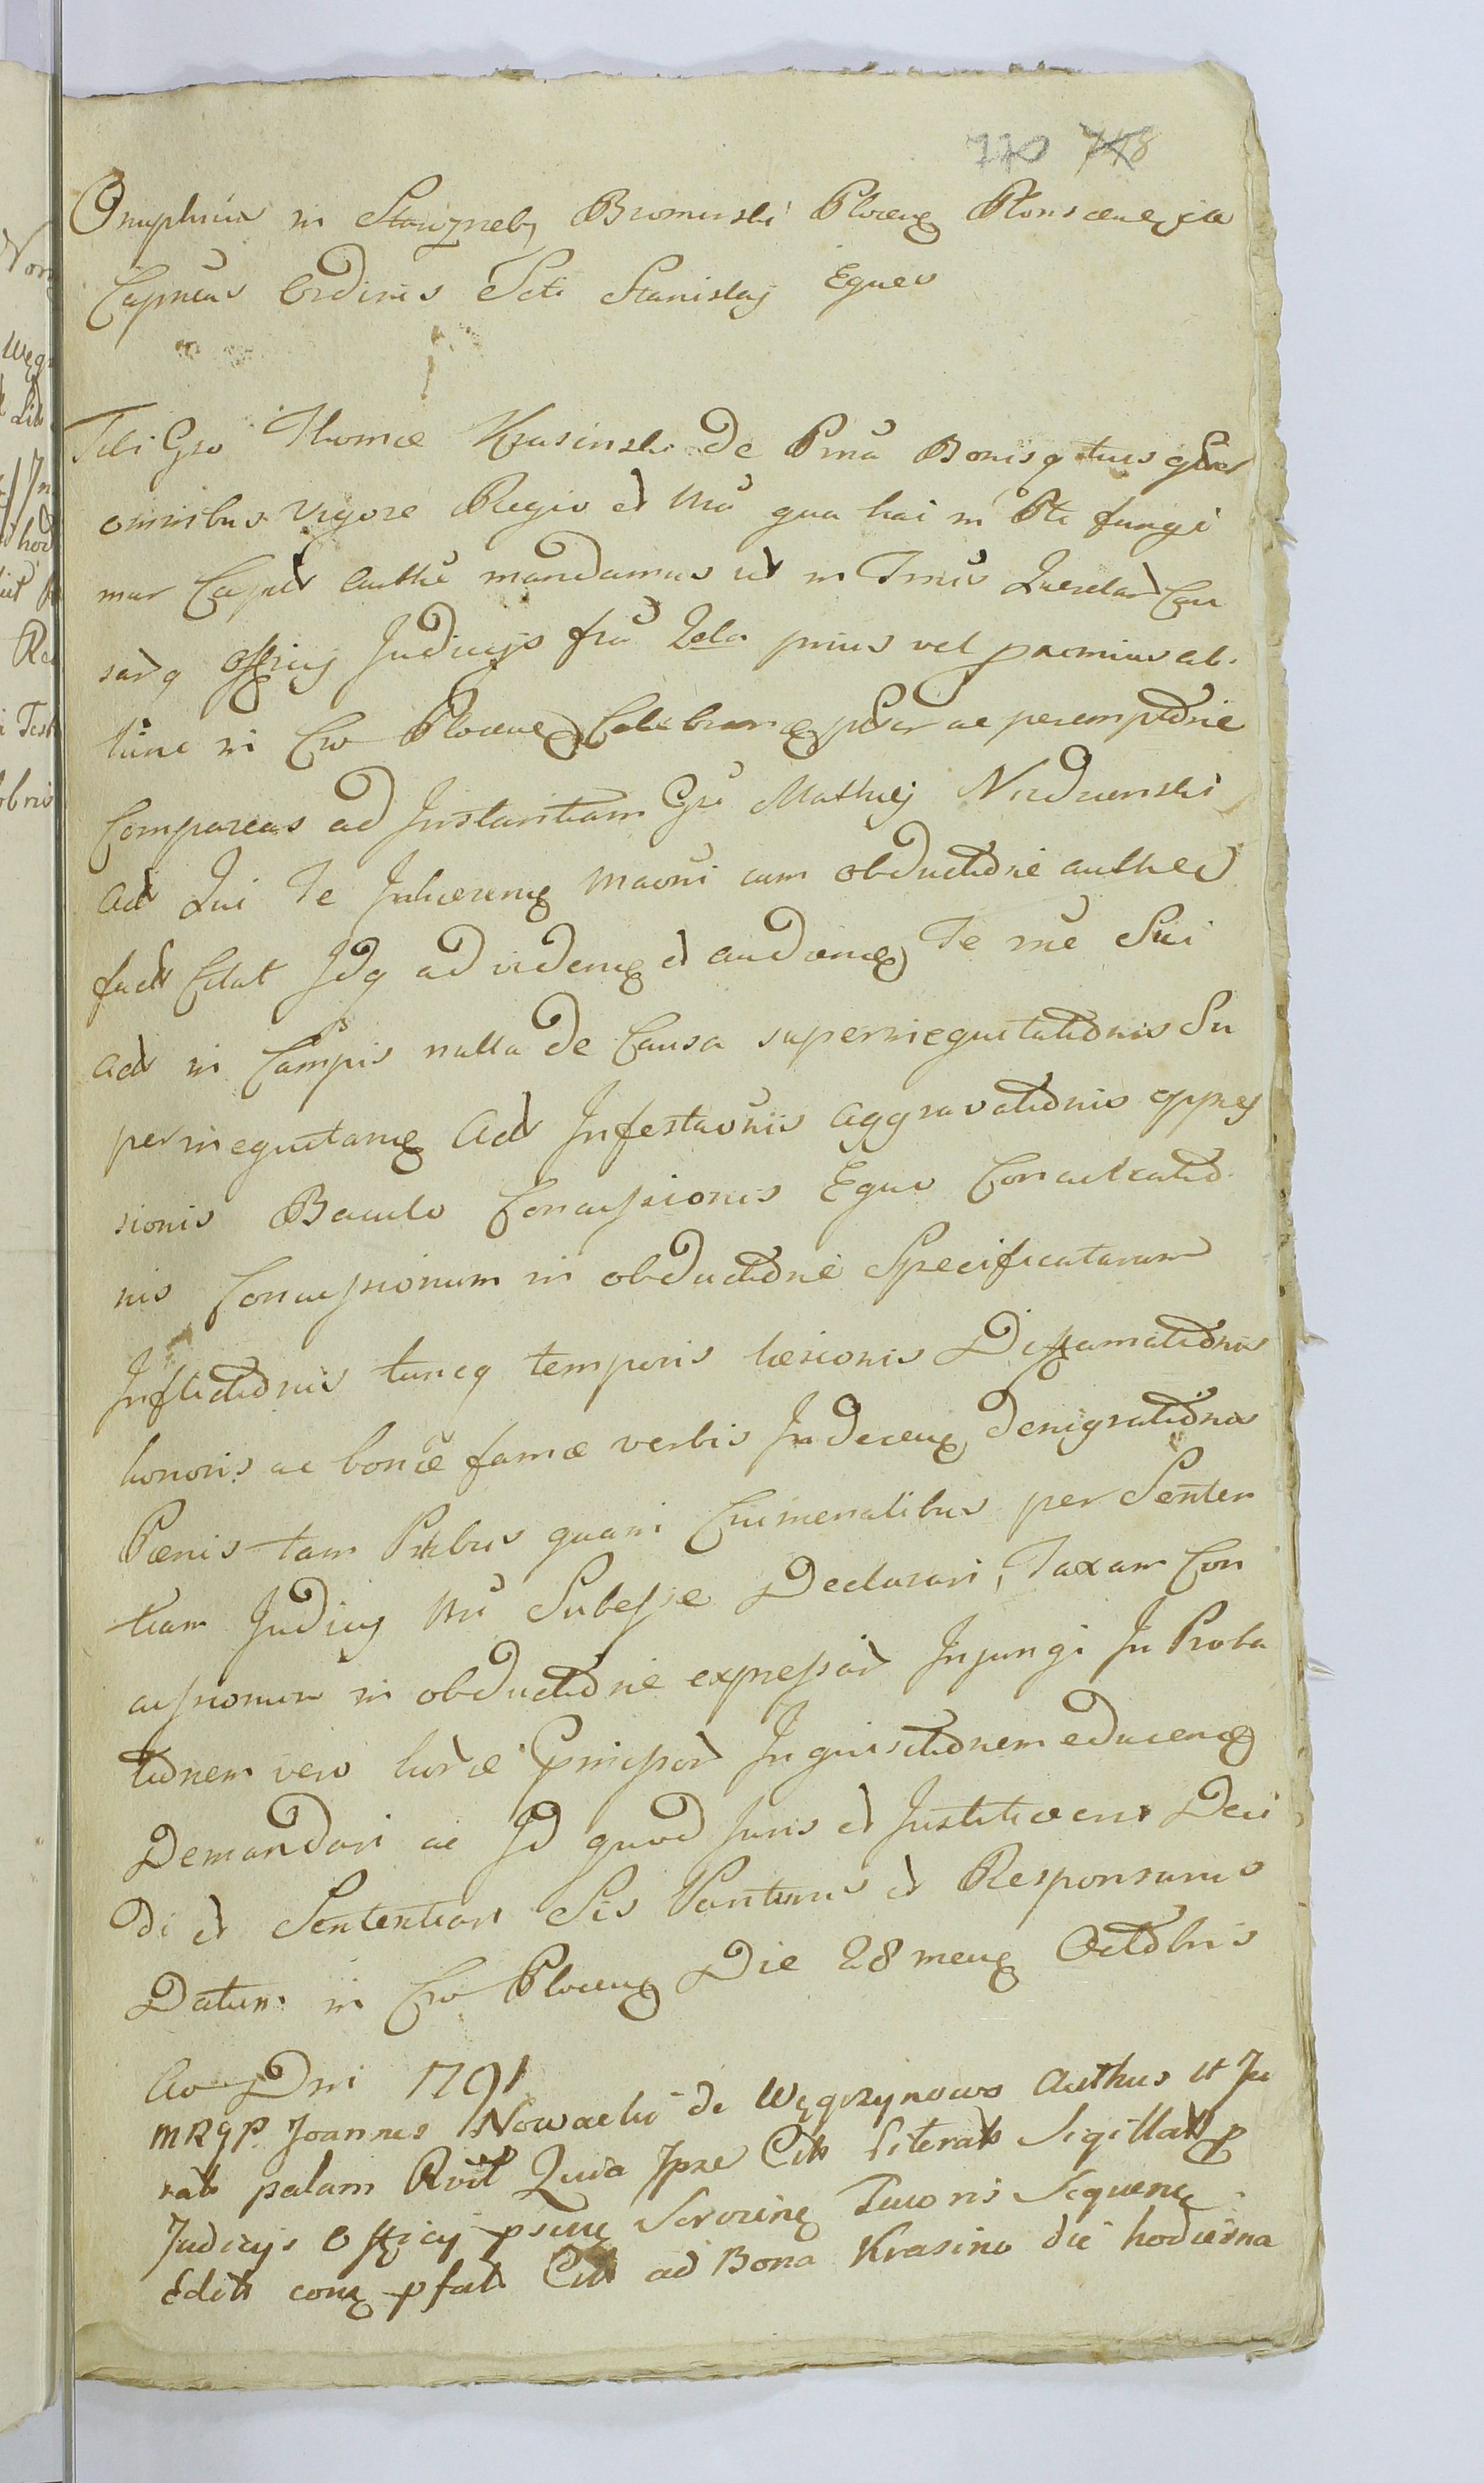 770 748
Onuphrius in Skarzneb Bromirski Plocen Plonscenq ca
Capneus Ordinis Scti Stanislaj Eques
Tibi Gso Thomæ Krasinski De Pnã Bonisq tuis gñer
omnibus vigore Regio et Nrã qua hai in Pte fungi
mur Capit Authte mandamus ut in Trnis Querelar Cau
sarq Officij Judicijs feã 2da prius vel proximius ab
hinc in Cro Plocen Celebran pser ac peremptorie
Compareas ad Instantiam Gsi Mathej Nidzienski
Act Qui Te Inhæren Maoni cum obductione authen
fact Citat Idq ad viden et audien Te me Sui
act in Campis nulla de Causa superinequitationis Su
perinequitan Act Infestaonis aggravationis oppres
sionis Baculo Concussionis Equo Conculcatio
nis Concussionum in obductione Specificatarum
Inflictionis tuncq temporis læsionis Diffamationis
honoris ac bonæ famæ verbis Indecen denigrationis
Pœnis tam Pnlbus quam Criminalibus per Senten
tiam Judicij Nri Subesse Declarari, Taxam Con
cussionum in obductione expressar Injungi In Proba
tionem vero horæ Pmissor Inquisitionem educen
Demandari ac Id quod Juris et Justitiæ erit Deci
di et Sententiari Sis Pariturus et Responsurus
Datum in Cro Plocen Die 28 mens Octobris
Ao Dni 1791
MRGP. Joannes Nowacki de Węgrzynowo Authus et Ju
rats palam Rvit Quia Ipse Citt Literats Sigillats p
Judicijs Officij psen Servien Tenoris Sequen
Edits con pfats Citt ad Bona Krasino die hodierna